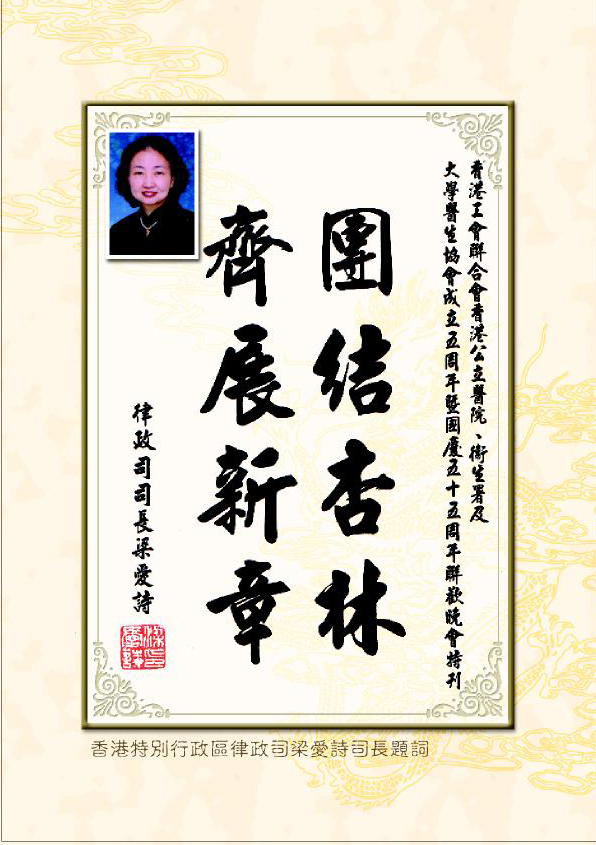 香港工會聯合會香港公立醫院、衞生署及
大學醫生協會成立五周年暨國慶五十五周年聯歡晚會特刊
團結杏林
齊展新章
律政司司長梁愛詩
香港特別行政區律政司梁愛詩司長題詞